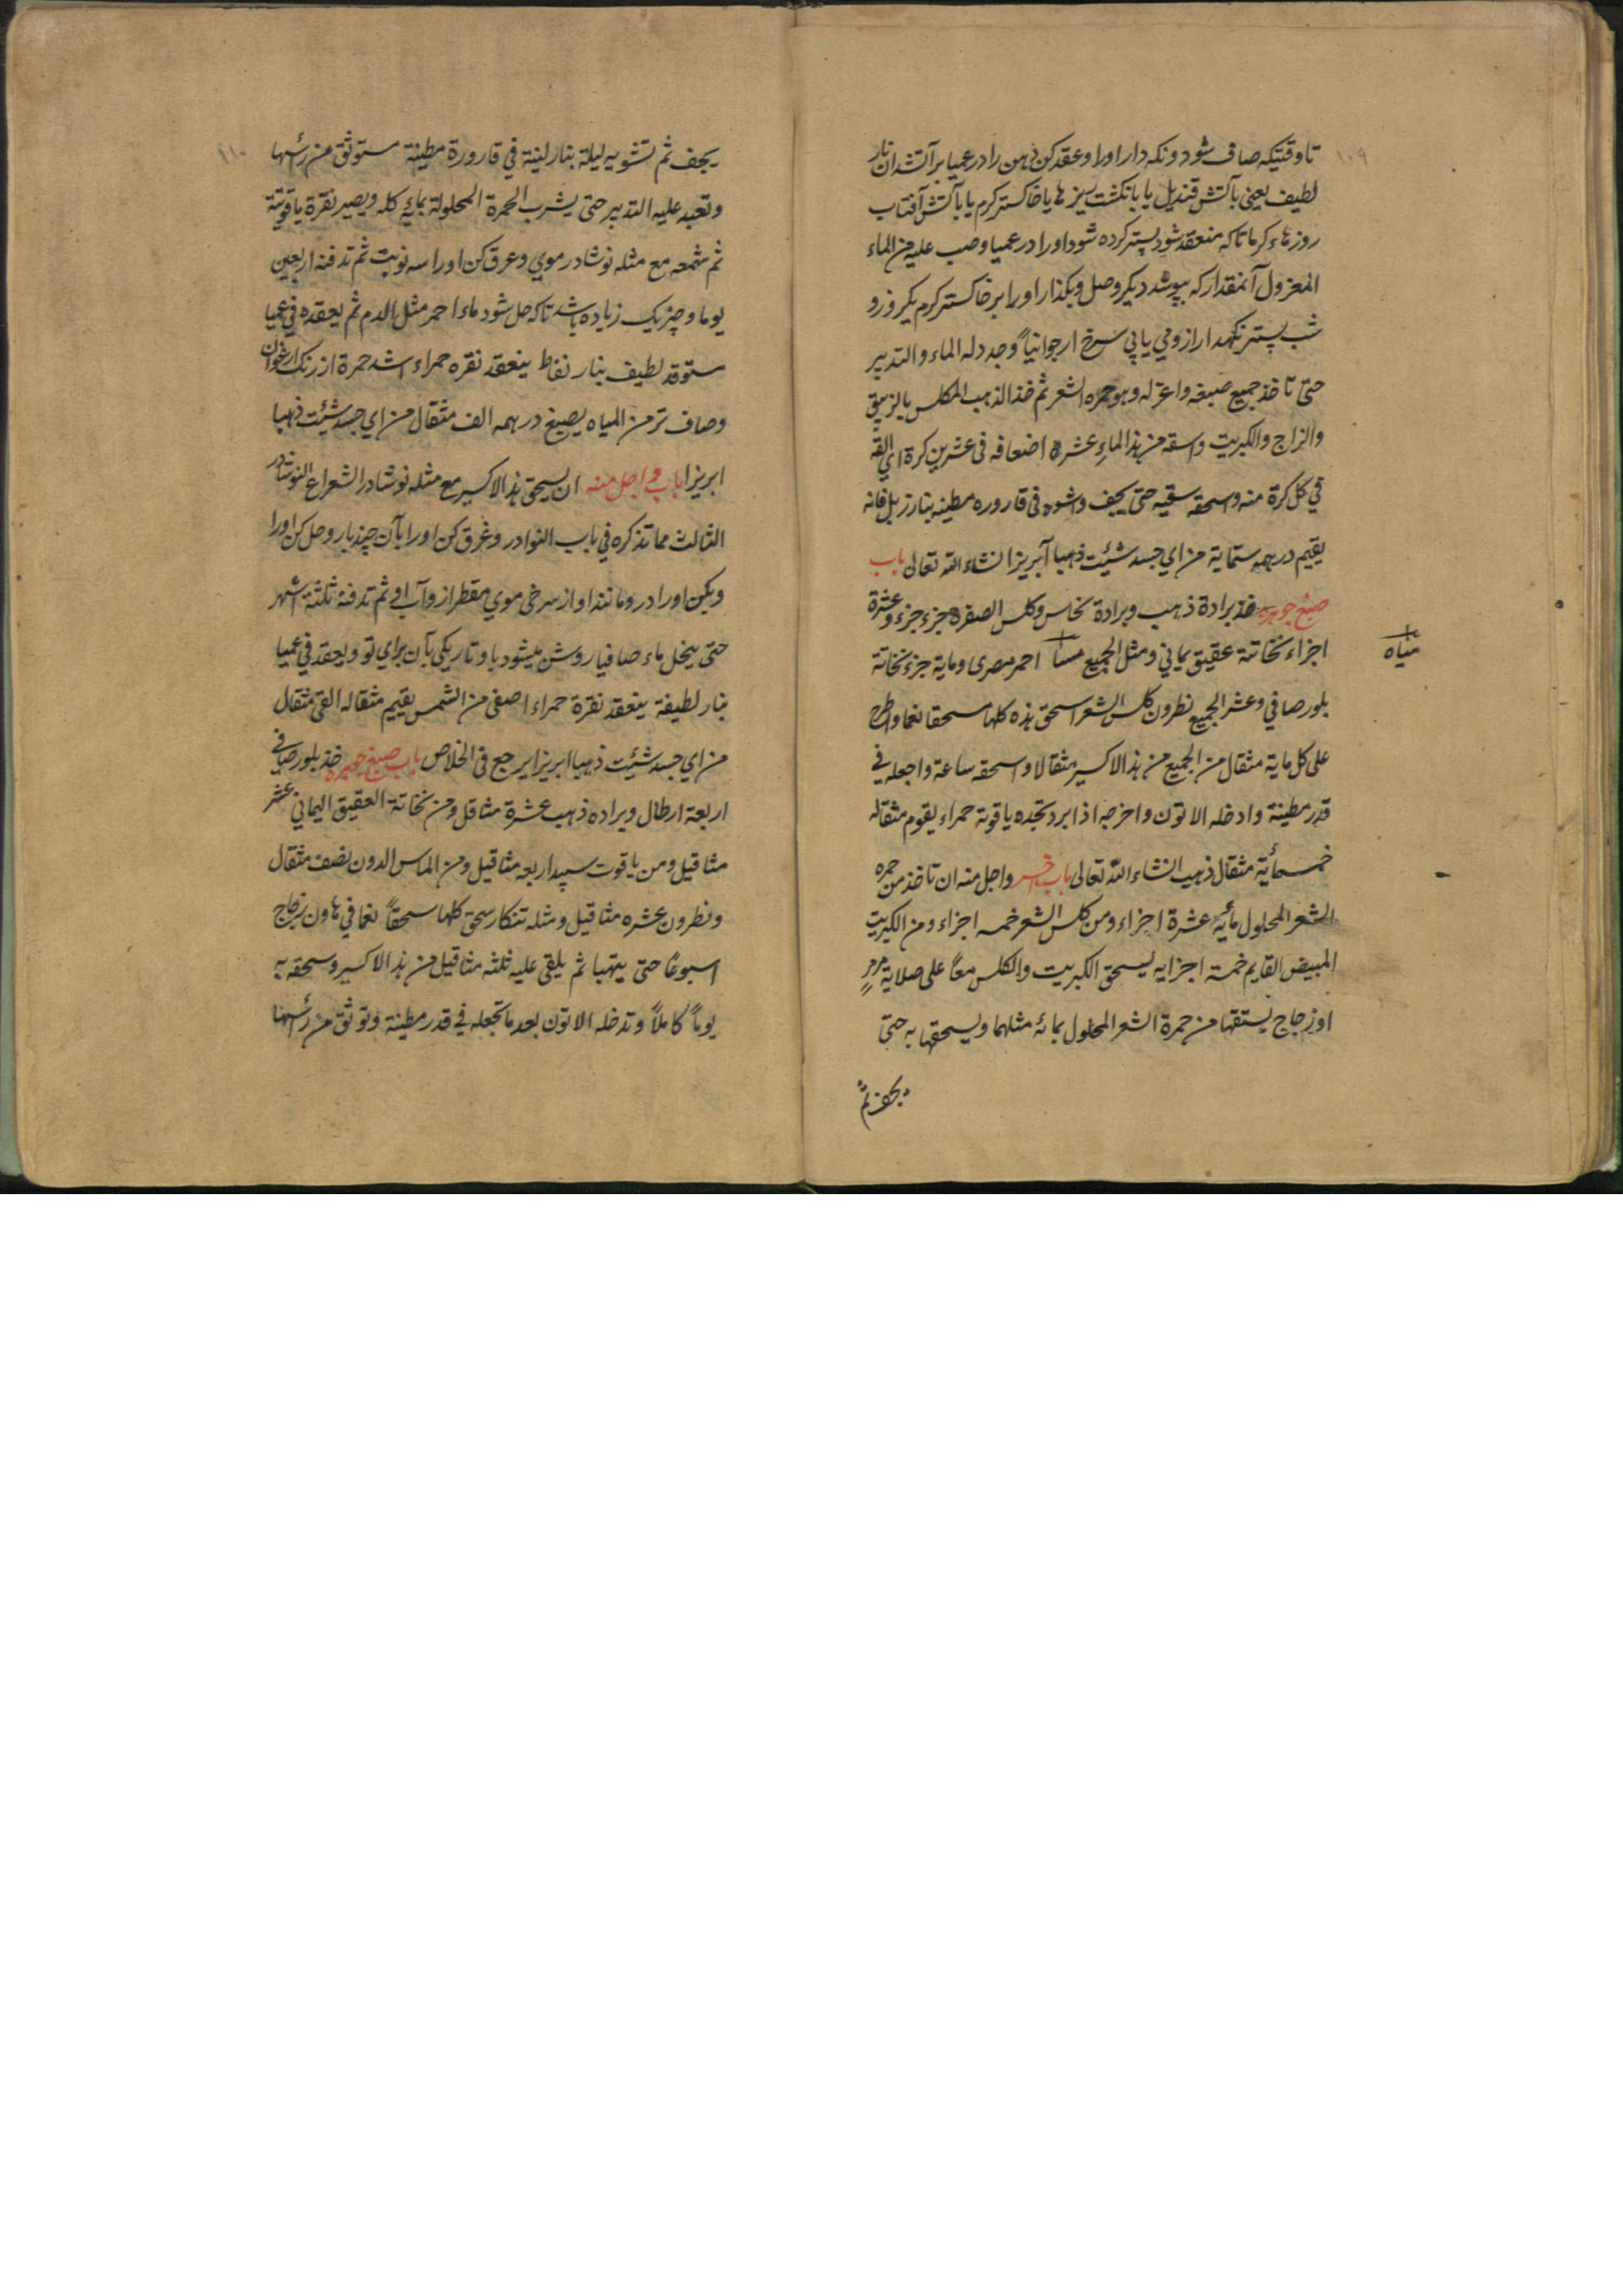 ١٠٩
تا وقتیکه صاف شود و نکه دار اورا و عقد کن دهن را در عمیا بر آتشدان نار
لطیف یعنی بآتش قندیل یا بانکشت ریزها یا خاکستر کرم یا بآتش آفتاب
روزهاء کرما تا که منعقد شود پستر کرده شود اورا در عمیا وصب علیه من الماء
المعزول آنمقدار که بپوشد دیکر وصل و بکذار اورا بر خاکستر کرم یکروز و
شب پستر نکهدار ازو می یابی سرخ ارجوانیاً وجدد له الماء والتدبیر
حتی تاخذ جمیع صبغه واعزله وهو حمره الشعر ثم خذ الذهب المکلس بالزیبق
والزاج والکبریت واسقه من هذا الماءِ عشرة اضعافه فی عشرین کرة ای القه
فی کل کرة منه واسحقه سقیه حتی یجف واشوه فی قاروره مطینه بنار زبل فانه
یقیم درهمه ستمایة من ای جسد شئیت ذهبا آبریزا انشاء الله تعالی باب
صبغ جوهره خذ برادة ذهب وبرادة نحاس وکلس الصفره جزء جزء وعشرة
اجزاء نخاتة عقیق یمانی ومثل الجمیع مسا احمر مصری ومایة جزء نخاتة
بلور صافی وعشر الجمیع نطرون کلس الشعر اسحق هذه کلها سحقا نعما واطرح
علی کل مایة مثقال من الجمیع من هذا الاکسیر مثقالا واسحقه ساعة واجعله فی
قدر مطینة وادخله الاتون واخرجه اذا برد تجده یاقوتة حمراء یقوم مثقاله
خمسمأیة مثقال ذهب انشاء اللّه تعالی باب اخر واجل منه ان تاخذ من حمره
الشعر المحلول مائه عشرة اجزاء ومن کلس الشعر خمسه اجزاء ومن الکبریت
المبیض القایم خمسة اجزایه یسحق الکبریت والکلس معاً علی صلایة مرمر
او زجاج یستقها من حمرة الشعر المحلول بمائه مثلهما ویسحقها به حتی
یجف ثم
میاه
١١٠
یجف ثم تشویه لیلة بنار لینة فی قارورة مطینة مستوثق من رأسها
وتعید علیه التدبیر حتی یشرب الحمرة المحلولة بمایه کله ویصیر نقرة یاقوتیة
ثم شمعه مع مثله نوشادر موی وعرق کن اورا سه نوبت ثم تدفنه اربعین
یوما و چیزیک زیاده باشد تا که حل شود ماء احمر مثل الدم ثم یعقده فی عمیا
ستوقد لطیف بنار نفاط ینعقد نقره حمراء اشد حمرة از رنک ارغوان
وصاف تر من المیاه یصبغ درهمه الف مثقال من ای جسد شئیت ذهبا
ابریزا باب واجل منه ان یسحق هذا الاکسیر مع مثله نوشادر الشعر اع النوشادر
الثالث مما تذکره فی باب النوادر وغرق کن اورا بآن چند بار وحل کن اورا
ویکن اورا در ومانند او از سرخی موی مقطر از و آب او ثم تدفنه ثلثة اشهر
حتی ینحل ماء صافیا روشن میشود با و تاریکی بآن برای تو ویعقد فی عمیا
بنار لطیفة ینعقد نقرة حمراء اصفی من الشمس یقیم مثقاله القی مثقال
من ای جسد شئیت ذهبا ابریزا یرجع فی الخلاص باب صبغ جوهره خذ بلور صافی
اربعة ارطال وبراده ذهب عشرة مثاقل ومن نخاتة العقیق الیمانی عشر
مثاقیل ومن یاقوت سپید اربعه مثاقیل ومن الماس الدون نصف مثقال
ونطرون عشره مثاقیل ومثله تنکار سحق کلها سحقاً نعما فی هاون زجاج
اسبوعًا حتی یتهبا ثم یلقی علیه ثلثه مثاقیل من هذا الاکسیر وسحقه به
یوماً کاملاً وتدخله الاتون بعد ما تجعله فی قدر مطینة وتوثق من رأسها